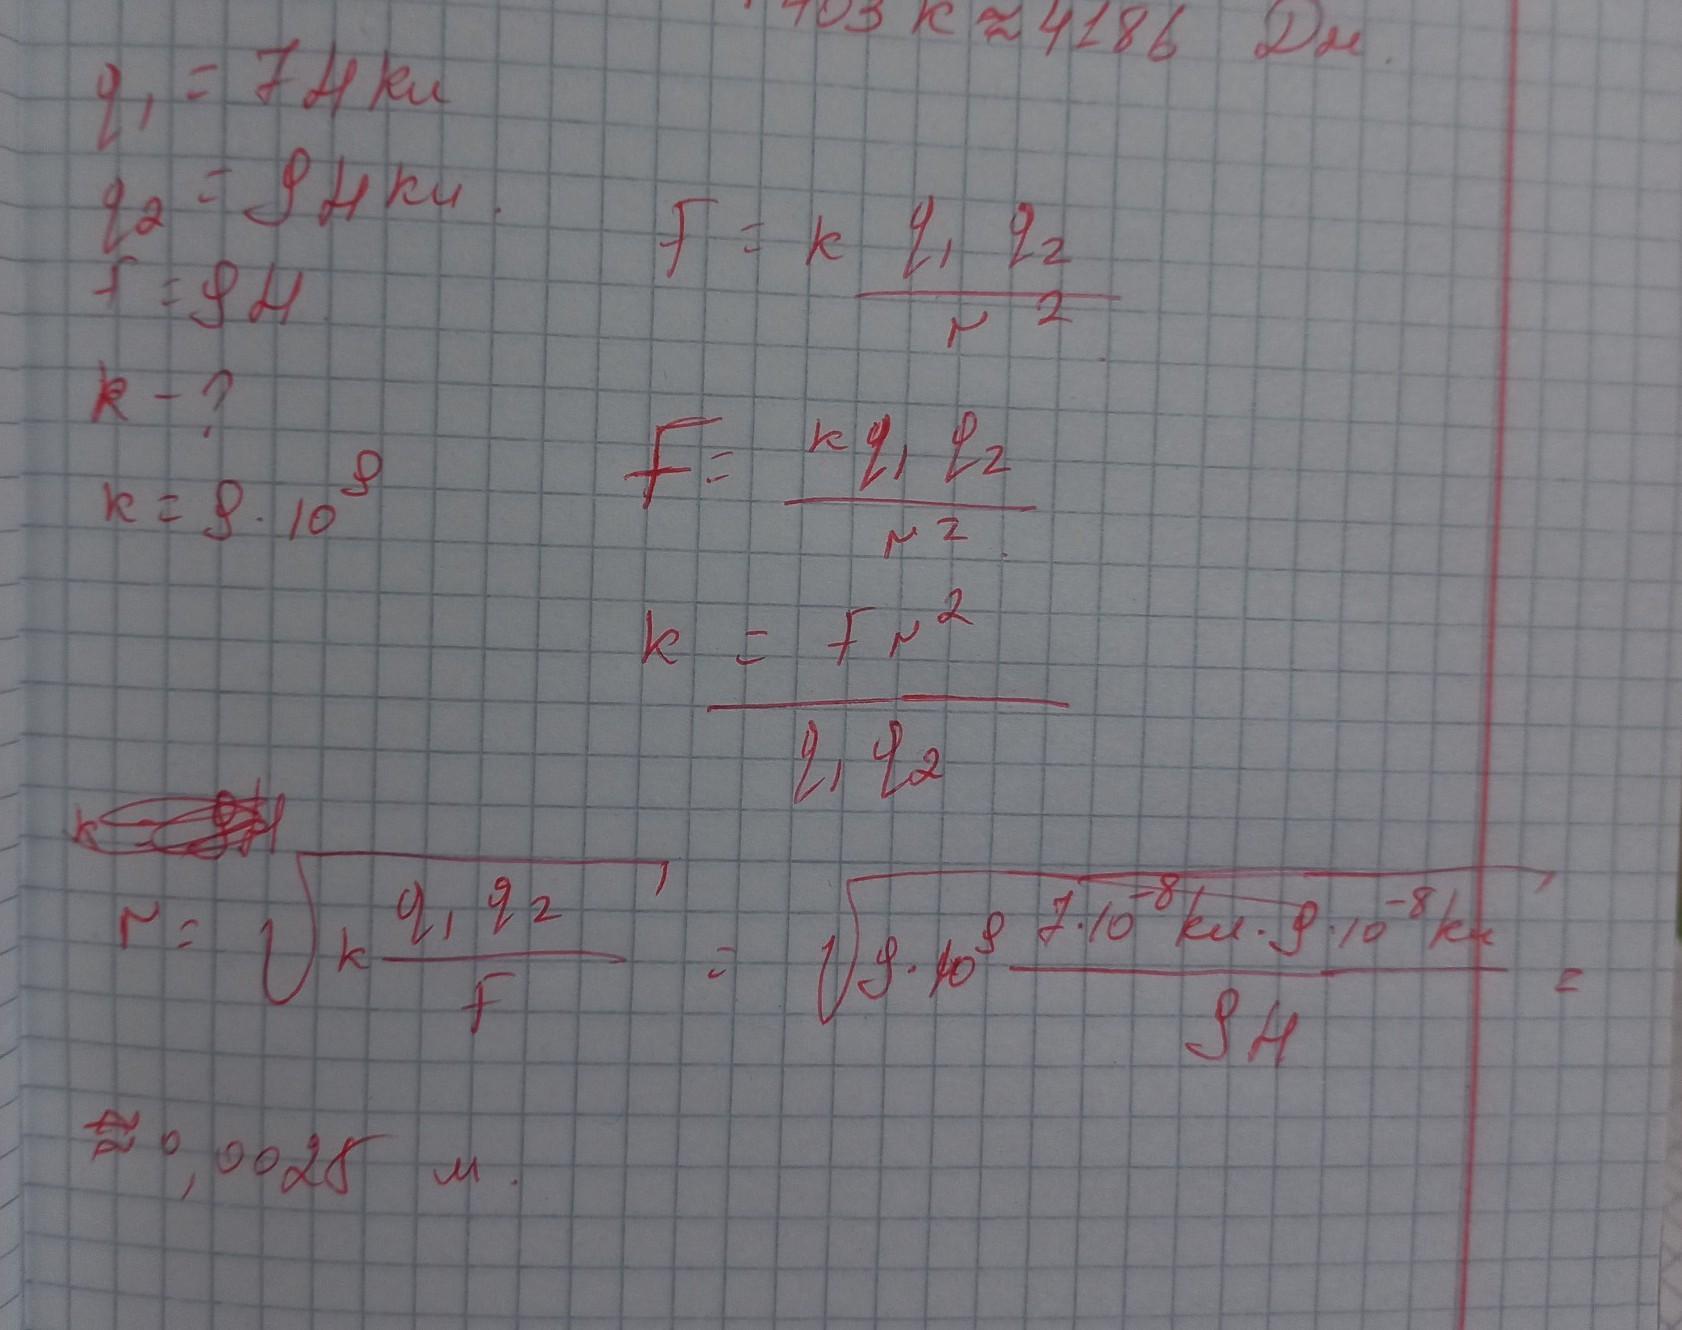 403 К ≈ 4186 Дж.
q₁ = 7 Нкл
q₂ = 9 Нкл.
F = 9 Н
k - ?
k = 9 · 10⁹
F = k q₁ q₂ / r²
F = k q₁ q₂ / r²
k = F r² / q₁ q₂
r = √(k q₁ q₂ / F) = √(9 · 10⁹ 7 · 10⁻⁸ кл · 9 · 10⁻⁸ кл / 9 Н) =
≈ 0,0025 м.